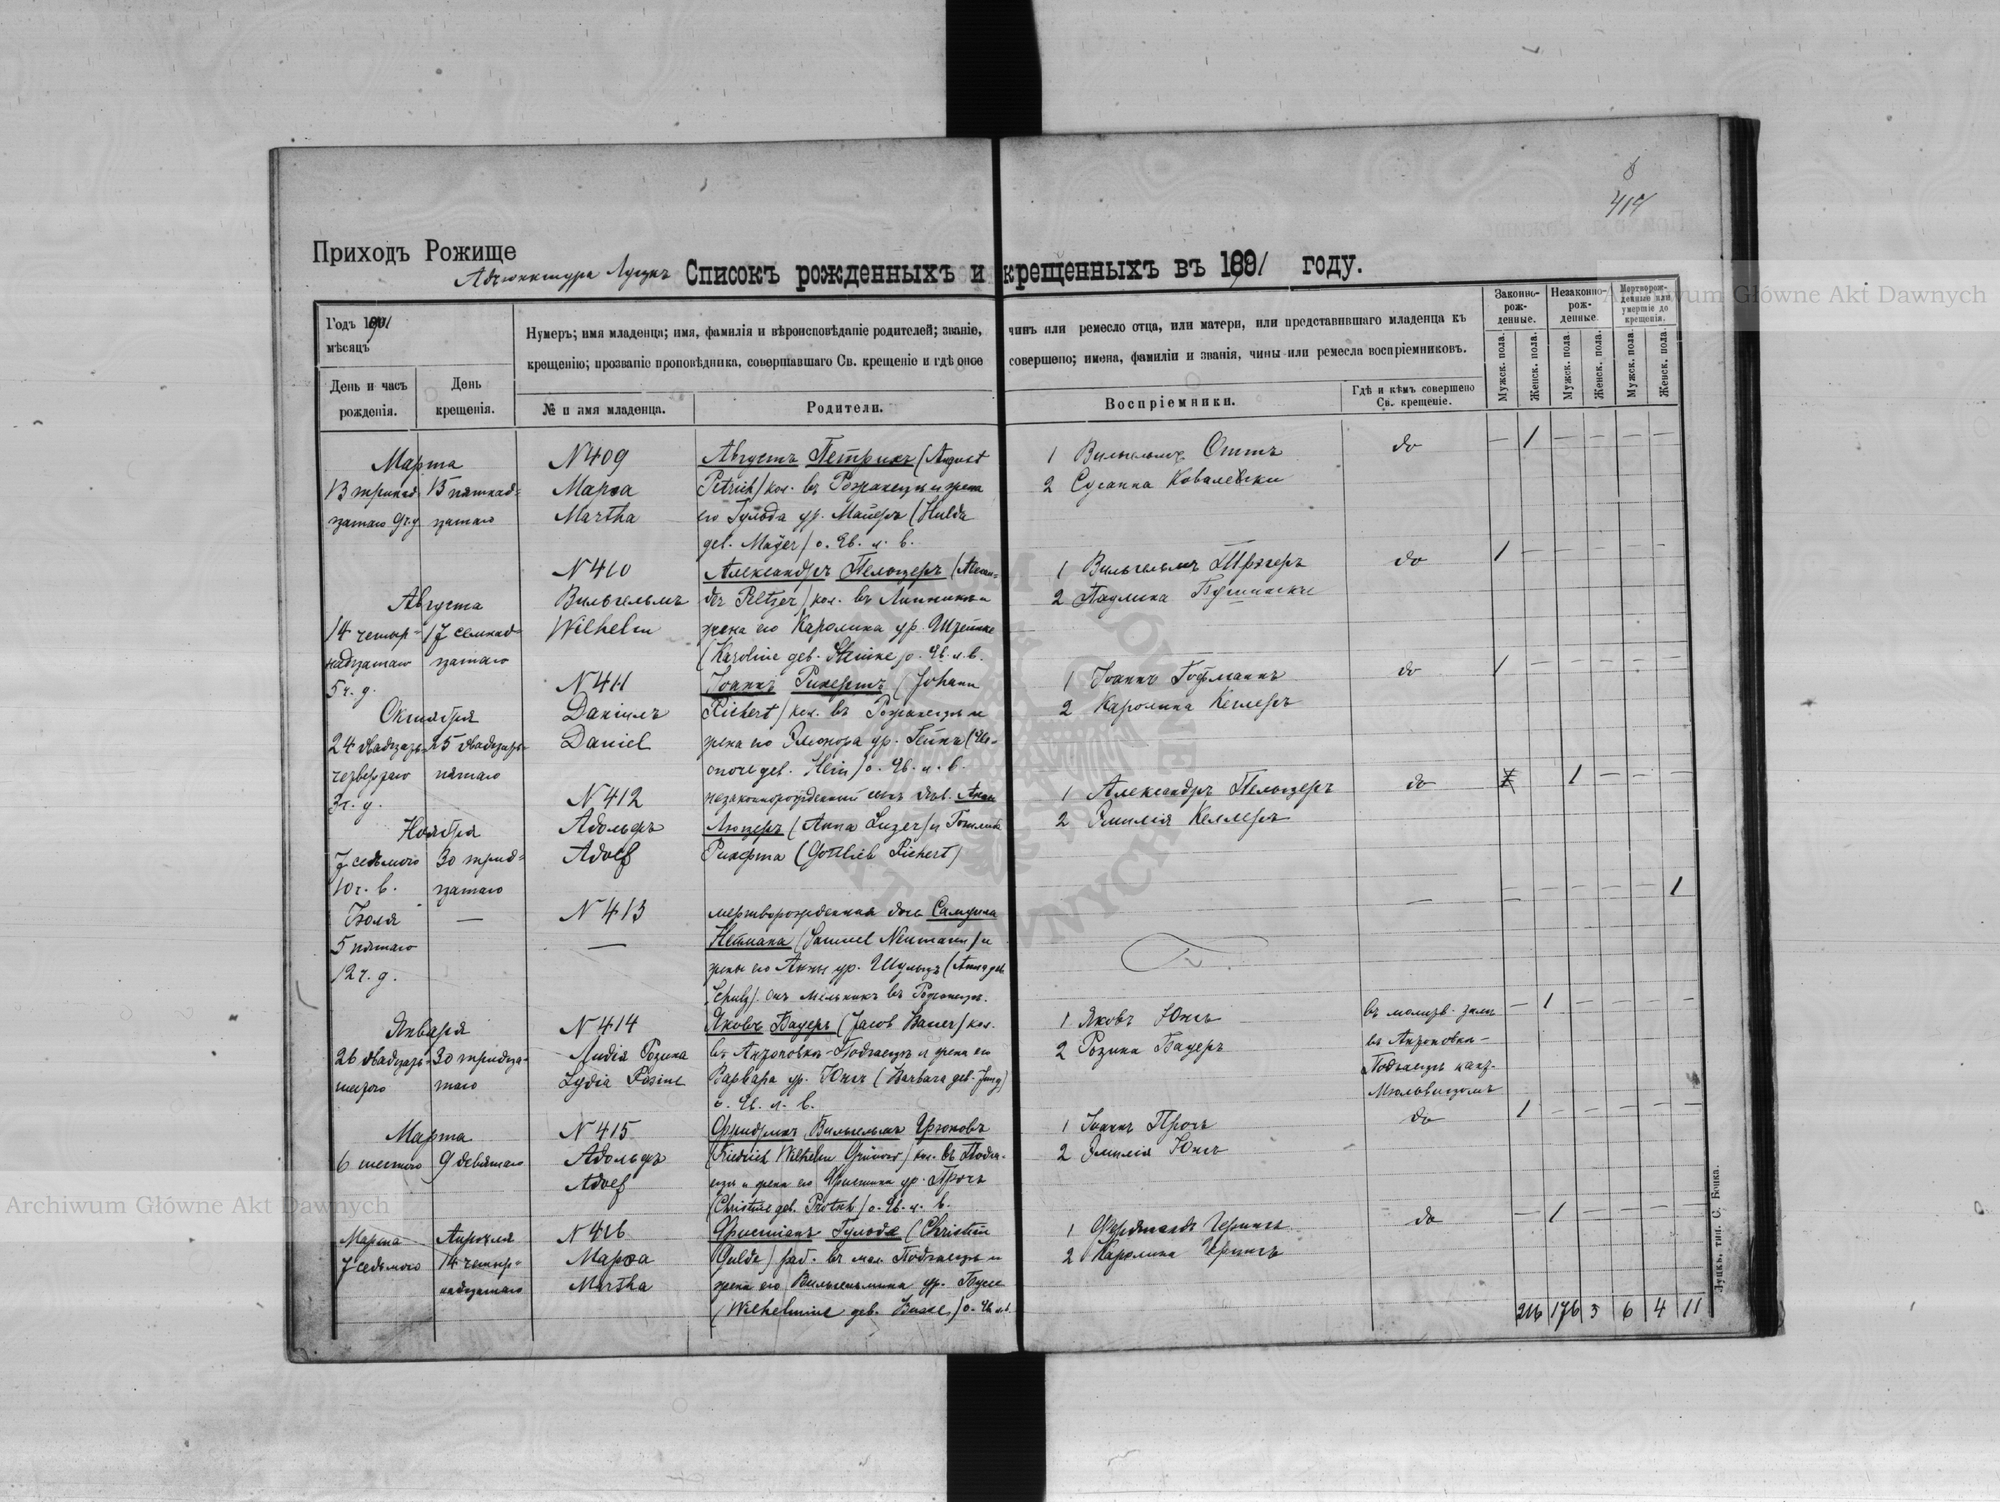 8
417
Приходъ Рожище
Адъюнктура Луцкъ
Списокъ рожденныхъ и крещенныхъ въ 1891 году.
Годъ 1891
мѣсяцъ
День и часъ рожденія.
День крещенія.
Нумеръ; имя младенца; имя, фамилія и вѣроисповѣданіе родителей; званіе, чинъ или ремесло отца, или матери, или представившаго младенца къ
крещенію; прозваніе проповѣдника, совершавшаго Св. крещеніе и гдѣ оное совершено; имена, фамиліи и званія, чины или ремесла воспріемниковъ.
№ и имя младенца.
Родители.
Воспріемники.
Гдѣ и кѣмъ совершено Св. крещеніе.
Законно-рож-денные.
Незаконно-рож-денные.
Мертворож-денные или умершіе до крещенія.
Мужск. пола.
Женск. пола.
Мужск. пола.
Женск. пола.
Мужск. пола.
Женск. пола.
Марта
13 тринад-
цатаго 9 ч. у.
15 пятнад-
цатаго
N 409
Марѳа
Martha
Августъ Петрихъ (August
Petrich) кол. въ и жена
его Гульда ур. Майеръ (Hulda
geb. Mayer) о. Ев. л. в.
1 Вильгельмъ Оттъ
2 Сусанна Ковалевски
до
— 1 — — — —
Августа
14 четыр-
надцатаго
5 ч. д.
17 семнад-
цатаго
N 410
Вильгельмъ
Wilhelm
Александръ Пельцеръ (Alexan-
der Peltzer) кол. въ и
жена его Каролина ур. Штейнке
(Karoline geb. Steinke) о. Ев. л. в.
1 Вильгельмъ
2 Паулина
до
1 — — — — —
Октября
24 двадцать-
четвертаго
3 ч. у.
25 двадцать-
пятаго
N 411
Даніилъ
Daniel
Іоаннъ Рихертъ (Johann
Richert) кол. въ и
жена его Элеонора ур. Гейнъ (Ele-
onore geb. Hein) о. Ев. л. в.
1 Іоаннъ Гофманнъ
2 Каролина Кеглеръ
до
1 — — — — —
Ноября
7 седьмого
10 ч. в.
30 трид-
цатаго
N 412
Адольфъ
Adolf
незаконнорожденный сынъ дѣв. Анны
Люцеръ (Anna Luzer) и Готлиба
Рихерта (Gottlieb Richert)
1 Александръ Пельцеръ
2 Эмилія Келлеръ
до
— 1 — — —
Іюля
5 пятаго
12 ч. д.
—
N 413
—
мертворожденная дочь Самуила
Неймана (Samuel Neumann) и
жены его Анны ур. Шульцъ (Anna geb.
Schulz). онъ мельникъ въ
—
— — — — — 1
Января
26 двадцать-
шестого
30 тридца-
таго
N 414
Лидія Розина
Lydia Rosine
Яковъ Бауеръ (Jacob Bauer) кол.
въ Антоновка-Подгаецъ и жена его
Варвара ур. Юнгъ (Barbara geb. Jung)
о. Ев. л. в.
1 Яковъ Юнгъ
2 Розина Бауеръ
въ молитв. залѣ
въ Антоновка-
Подгаецъ кант.
— 1 — — — —
Марта
6 шестого
9 девятаго
N 415
Адольфъ
Adolf
Фридрихъ Вильгельмъ Грюновъ
(Friedrich Wilhelm Grünow) кол. въ Подга-
ецъ и жена его Христина ур. Протъ
(Christine geb. ) о. Ев. л. в.
1 Іоаннъ Протъ
2 Эмилія Юнгъ
до
1 — — — — —
Марта
7 седьмого
Апрѣля
14 четыр-
надцатаго
N 416
Марѳа
Martha
Христіанъ Гульде (Christian
Gulde) раб. въ мал. Подгаецъ и
жена его Вильгельмина ур. Буссе
(Wilhelmine geb. Busse) о. Ев. л. в.
1 Фердинандъ
2 Каролина
до
— 1 — — — —
216 176 3 6 4 11
Луцкъ, тип. С. Бонка.
Archiwum Główne Akt Dawnych
Archiwum Główne Akt Dawnych